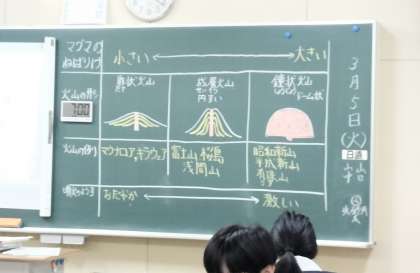 マグマの
ねばりけ
小さい
大きい
火山の形
盾状火山
たて
成層火山
せいそう
円すい
鐘状火山
しょうじょう
ドーム状
7:00
火山の例
マウナロア,キラウェア
富士山 桜島
浅間山
昭和新山
平成新山
有珠山
噴火のようす
おだやか
激しい
3月5日(火)
日直